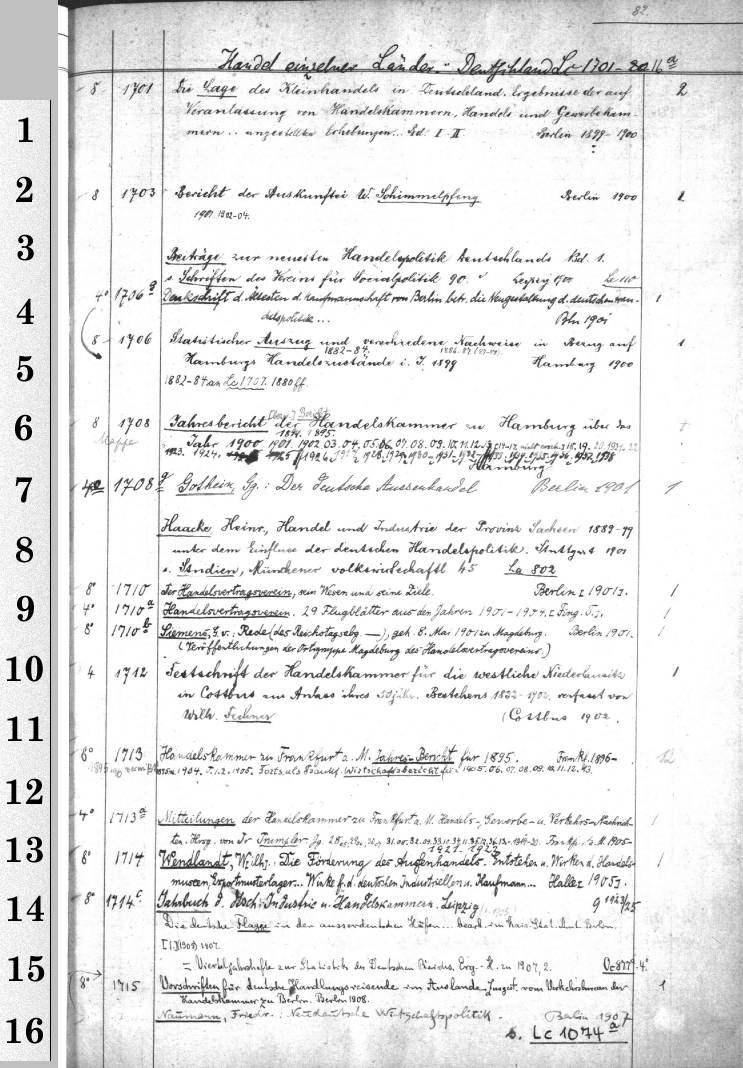 82.
Handel einzelner Länder. Deutschland Lc 1701-
8 1701 Die Lage des Kleinhandels in Deutschland. Ergebnisse der auf 2
Veranlassung von Handelskammern, Handels und Gewerbekam-
mern .. angestellten Erhebungen.. Bd. I-II. Berlin 1899-1900
1
2
8 1703 Bericht der Auskunftei W. Schimmelpfeng Berlin 1900
1901. 1902-04.
3
Beiträge zur neuesten Handelspolitik Deutschlands Bd. 1.
s. Schriften des Vereins für Socialpolitik 90. Leipzig 1900 Le 110
4
4° 1706 a Denkschrift d. Ältesten d. Kaufmannschaft von Berlin betr. die Neugestaltung d. deutschen Han- 1
delspolitik ... Bln 1901
8 1706 Statistischer Auszug und verschiedene Nachweise in Bezug auf 1
1882-84.
Hamburgs Handelszustände i. J. 1899 Hamburg 1900
5
1882-84 an Lc 1707. 1880 ff.
6
8 1708 Jahresbericht der Handelskammer zu Hamburg über das
Mappe
Jahr 1900 1901. 1902. 03. 04. 05. 06. 07. 08. 09. 10. 11. 12. 13
1923. 1924.
Hamburg
7
1708 Gothein, Gg.: Der deutsche Aussenhandel Berlin 1901 1
8
Haacke, Heinr., Handel und Industrie der Provinz Sachsen 1889-99
unter dem Einfluss der deutschen Handelspolitik. Stuttgart 1901
s. Studien, Münchener volkswirtschaftl 45 La 802
9
8° 1710 Der Handelsvertragsverein, sein Wesen und seine Ziele. Berlin [1901]. 1
4° 1710 a Handelsvertragsverein. 29 Flugblätter aus den Jahren 1901-1904. 1
8° 1710 b Siemens, G. v.: Rede (des Reichstagsabg. —), geh. 8. Mai 1901 zu Magdeburg. Berlin 1901. 1
(Veröffentlichungen der Ortsgruppe Magdeburg des Handelsvertragsvereins.)
10
4 1712 Festschrift der Handelskammer für die westliche Niederlausitz 1
in Cottbus aus Anlass ihres 50 jähr. Bestehens 1852-1902. verfasst von
Wilh. Fechner (Cottbus 1902.
11
8° 1713 Handelskammer zu Frankfurt a. M. Jahres-Bericht für 1895. Frankf. 1896- 12
Wirtschaftsbericht
12
4° 1713 a Mitteilungen der Handelskammer zu Frankfurt a. M. Handels-, Gewerbe- u. Verkehrs-Nachrich- 1
ten. Hrsg. von Dr Trumpler. Frankf. a. M. 1905-
1921. 1922
13
8° 1714 Wendlandt, Wilh.: Die Förderung des Außenhandels. Entstehen u. Wirken d. Handels- 1
museen, Exportmusterlager... Winke f. d. deutschen Industriellen u. Kaufmann... Halle [1905].
14
8° 1714 c Jahrbuch d. Dtsch. Industrie u. Handelskammern. Leipzig 9 1923/25
Die deutsche Flagge in den ausserdeutschen Häfen... bearb. im Kais. Stat. Amt. Berlin.
= Vierteljahrshefte zur Statistik des Deutschen Reichs. Erg.-H. zu 1907, 2.
15
8° 1715 Vorschriften für deutsche Handlungsreisende im Auslande. Zusgest. vom Verkehrsbureau der 1
Handelskammer zu Berlin. Berlin 1908.
16
Naumann, Friedr.: Neudeutsche Wirtschaftspolitik. Berlin 1907
s. Lc 1074 a